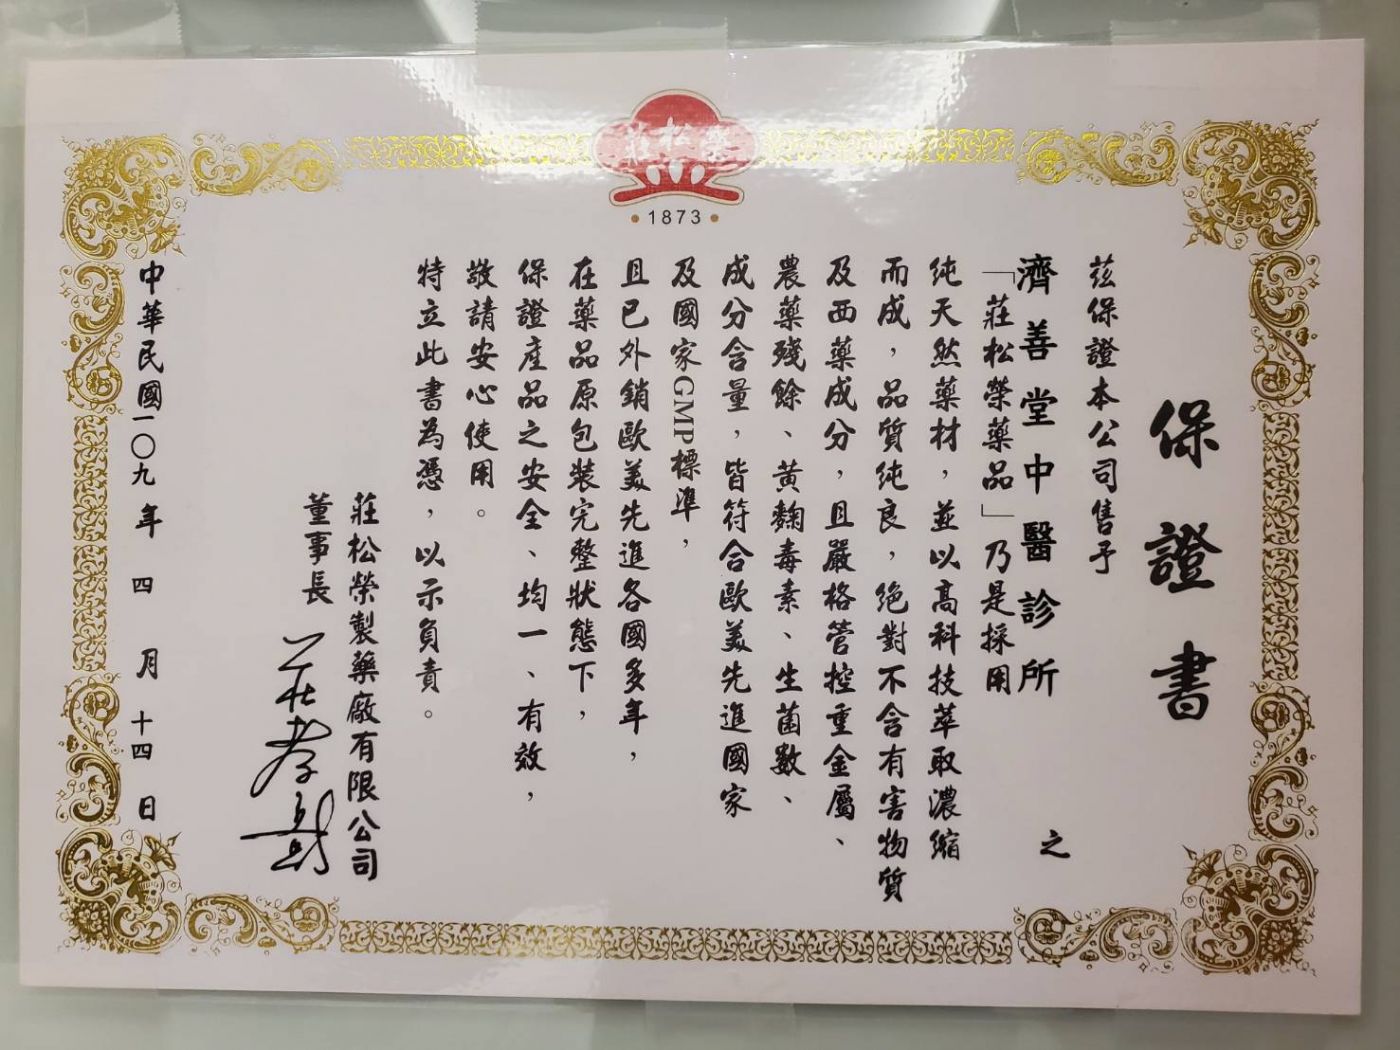 莊松榮
1873
保證書
茲保證本公司售予
濟善堂中醫診所 之
「莊松榮藥品」乃是採用
純天然藥材，並以高科技萃取濃縮
而成，品質純良，絕對不含有害物質
及西藥成分，且嚴格管控重金屬、
農藥殘餘、黃麴毒素、生菌數、
成分含量，皆符合歐美先進國家
及國家GMP標準，
且已外銷歐美先進各國多年，
在藥品原包裝完整狀態下，
保證產品之安全、均一、有效，
敬請安心使用。
特立此書為憑，以示負責。
莊松榮製藥廠有限公司
董事長
中華民國一〇九年四月十四日